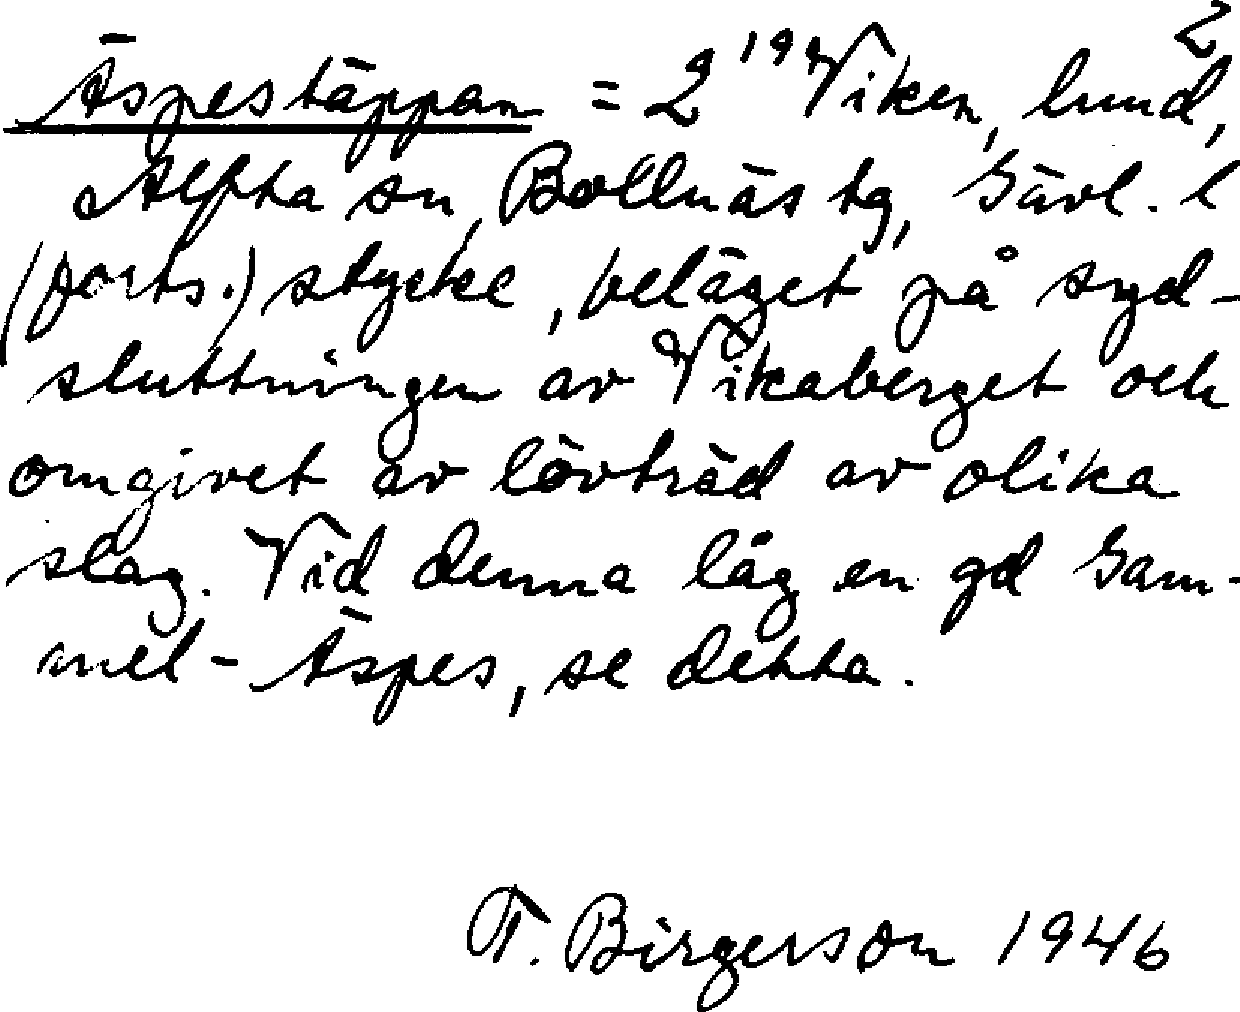 2
Äspestäppan = 2¹⁹ Viken, lund,
Alfta sn, Bollnäs tg, Gävl. l
(forts.) stycke, beläget på syd-
sluttningen av Vikaberget och
omgivet av lövträd av olika
slag. Vid denna låg en gd Gam-
mel-Äspes, se detta.
T. Birgerson 1946